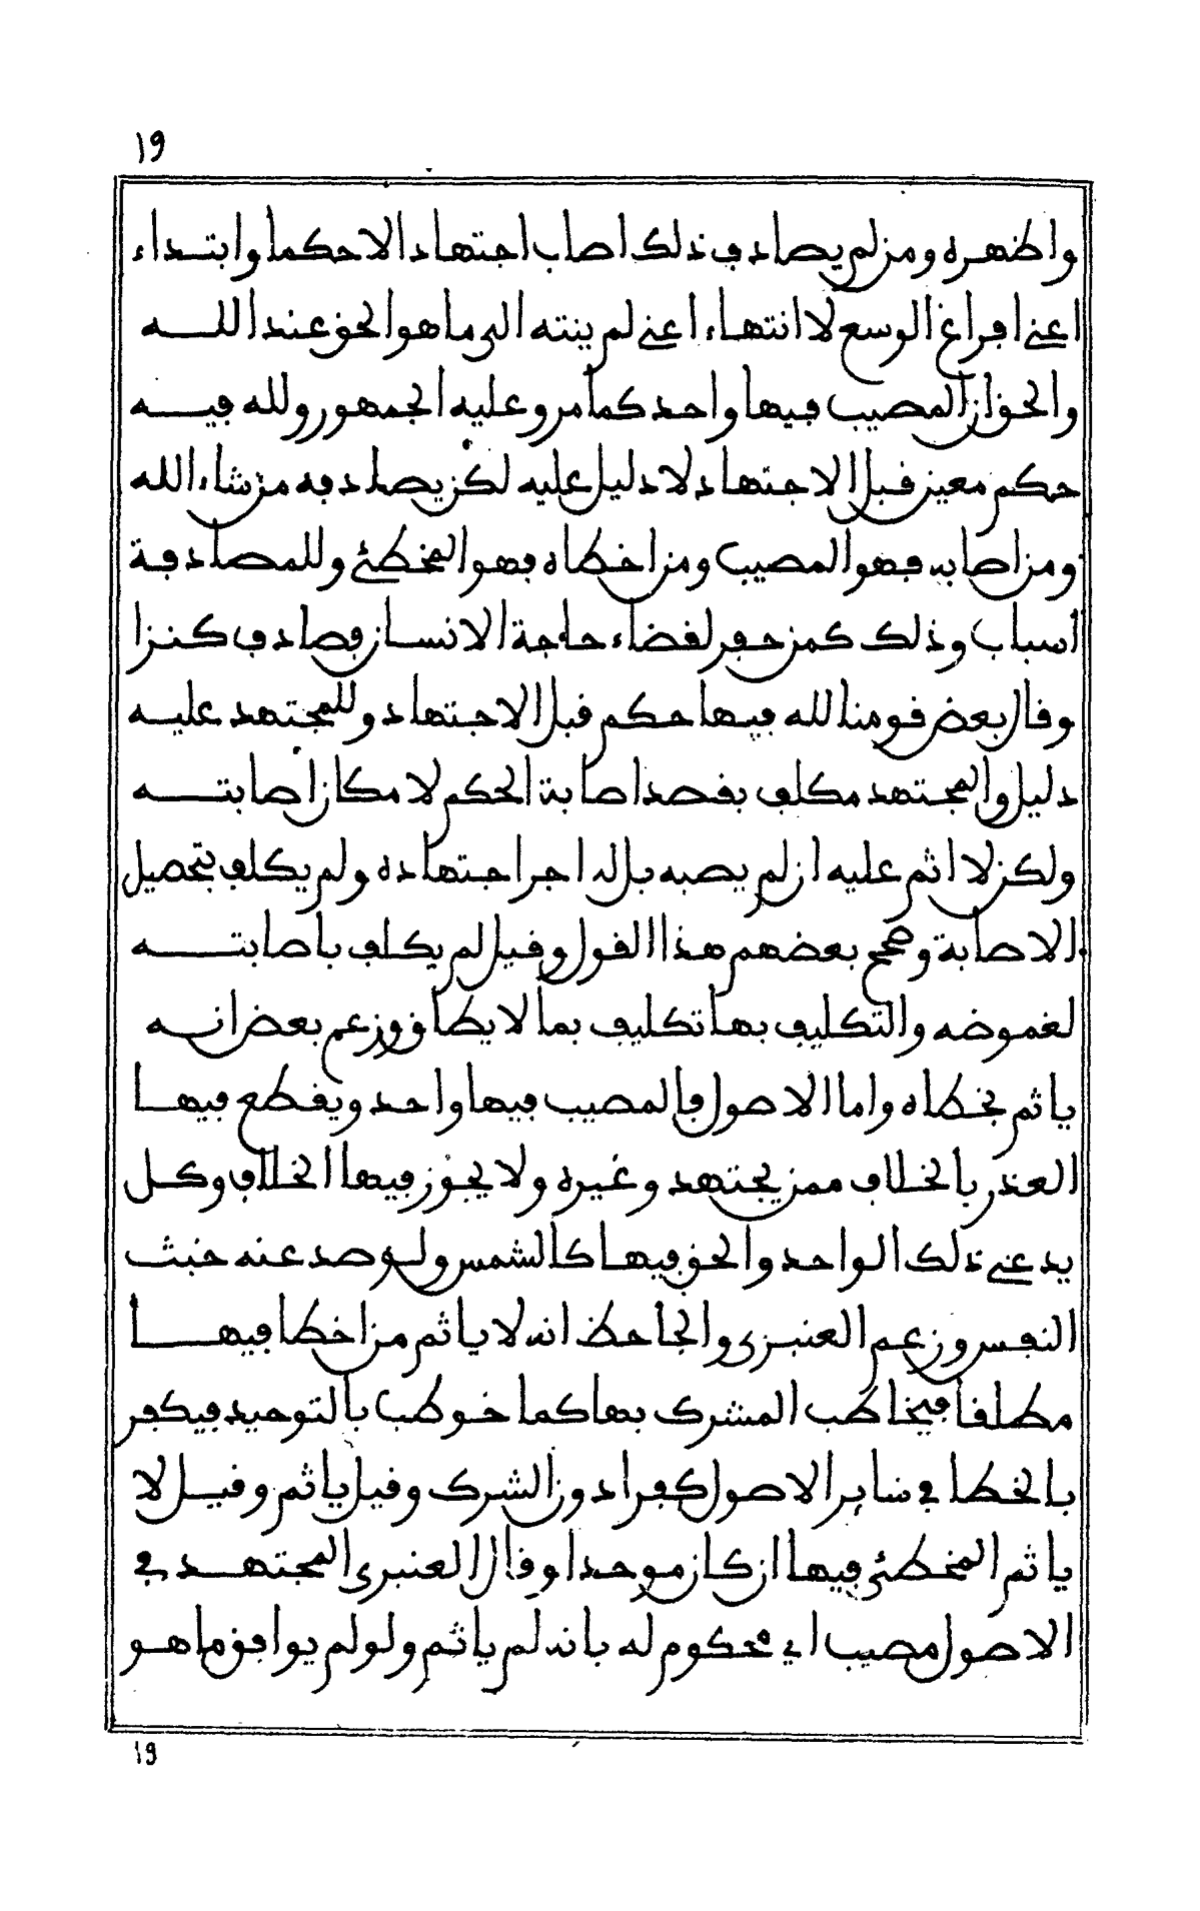 ١9
واظهره ومن لم يصادف ذلك اصاب اجتهادا لا حكما وابتداء
اعني افراغ الوسع لا انتهاء اعني لم ينته الى ما هو الحق عند الله
والحق ان المصيب فيها واحد كما مر وعليه الجمهور ولله فيه
حكم معين قبل الاجتهاد لا دليل عليه لكن يصادفه من شاء الله
ومن اصابه فهو المصيب ومن اخطاه فهو المخطئ وللمصادفة
أسباب وذلك كمن حفر لقضاء حاجة الانسان فصادف كنزا
وقال بعض قومنا لله فيها حكم قبل الاجتهاد وللمجتهد عليه
دليل والمجتهد مكلف بقصد اصابة الحكم لامكان إصابته
ولكن لا اثم عليه ان لم يصبه بل له اجر اجتهاده ولم يكلف بتحصيل
الاصابة وصحح بعضهم هذا القول وقيل لم يكلف باصابته
لغموضه والتكليف بها تكليف بما لا يطاق وزعم بعض انه
ياثم بخطاه واما الاصول فالمصيب فيها واحد ويقطع فيها
العذر بالخلاف ممن يجتهد وغيره ولا يجوز فيها الخلاف وكل
يدعي ذلك الواحد والحق فيها كالشمس ولو صد عنه خبث
النفس وزعم العنبري والجاحظ انه لا ياثم من اخطا فيها
مطلقا فيخاطب المشرك بها كما خوطب بالتوحيد فيكفر
بالخطا في ساير الاصول كفرا دون الشرك وقيل ياثم وقيل لا
ياثم المخطئ فيها ان كان موحدا وقال العنبري المجتهد في
الاصول مصيب اي محكوم له بانه لم ياثم ولو لم يوافق ما هو
١9